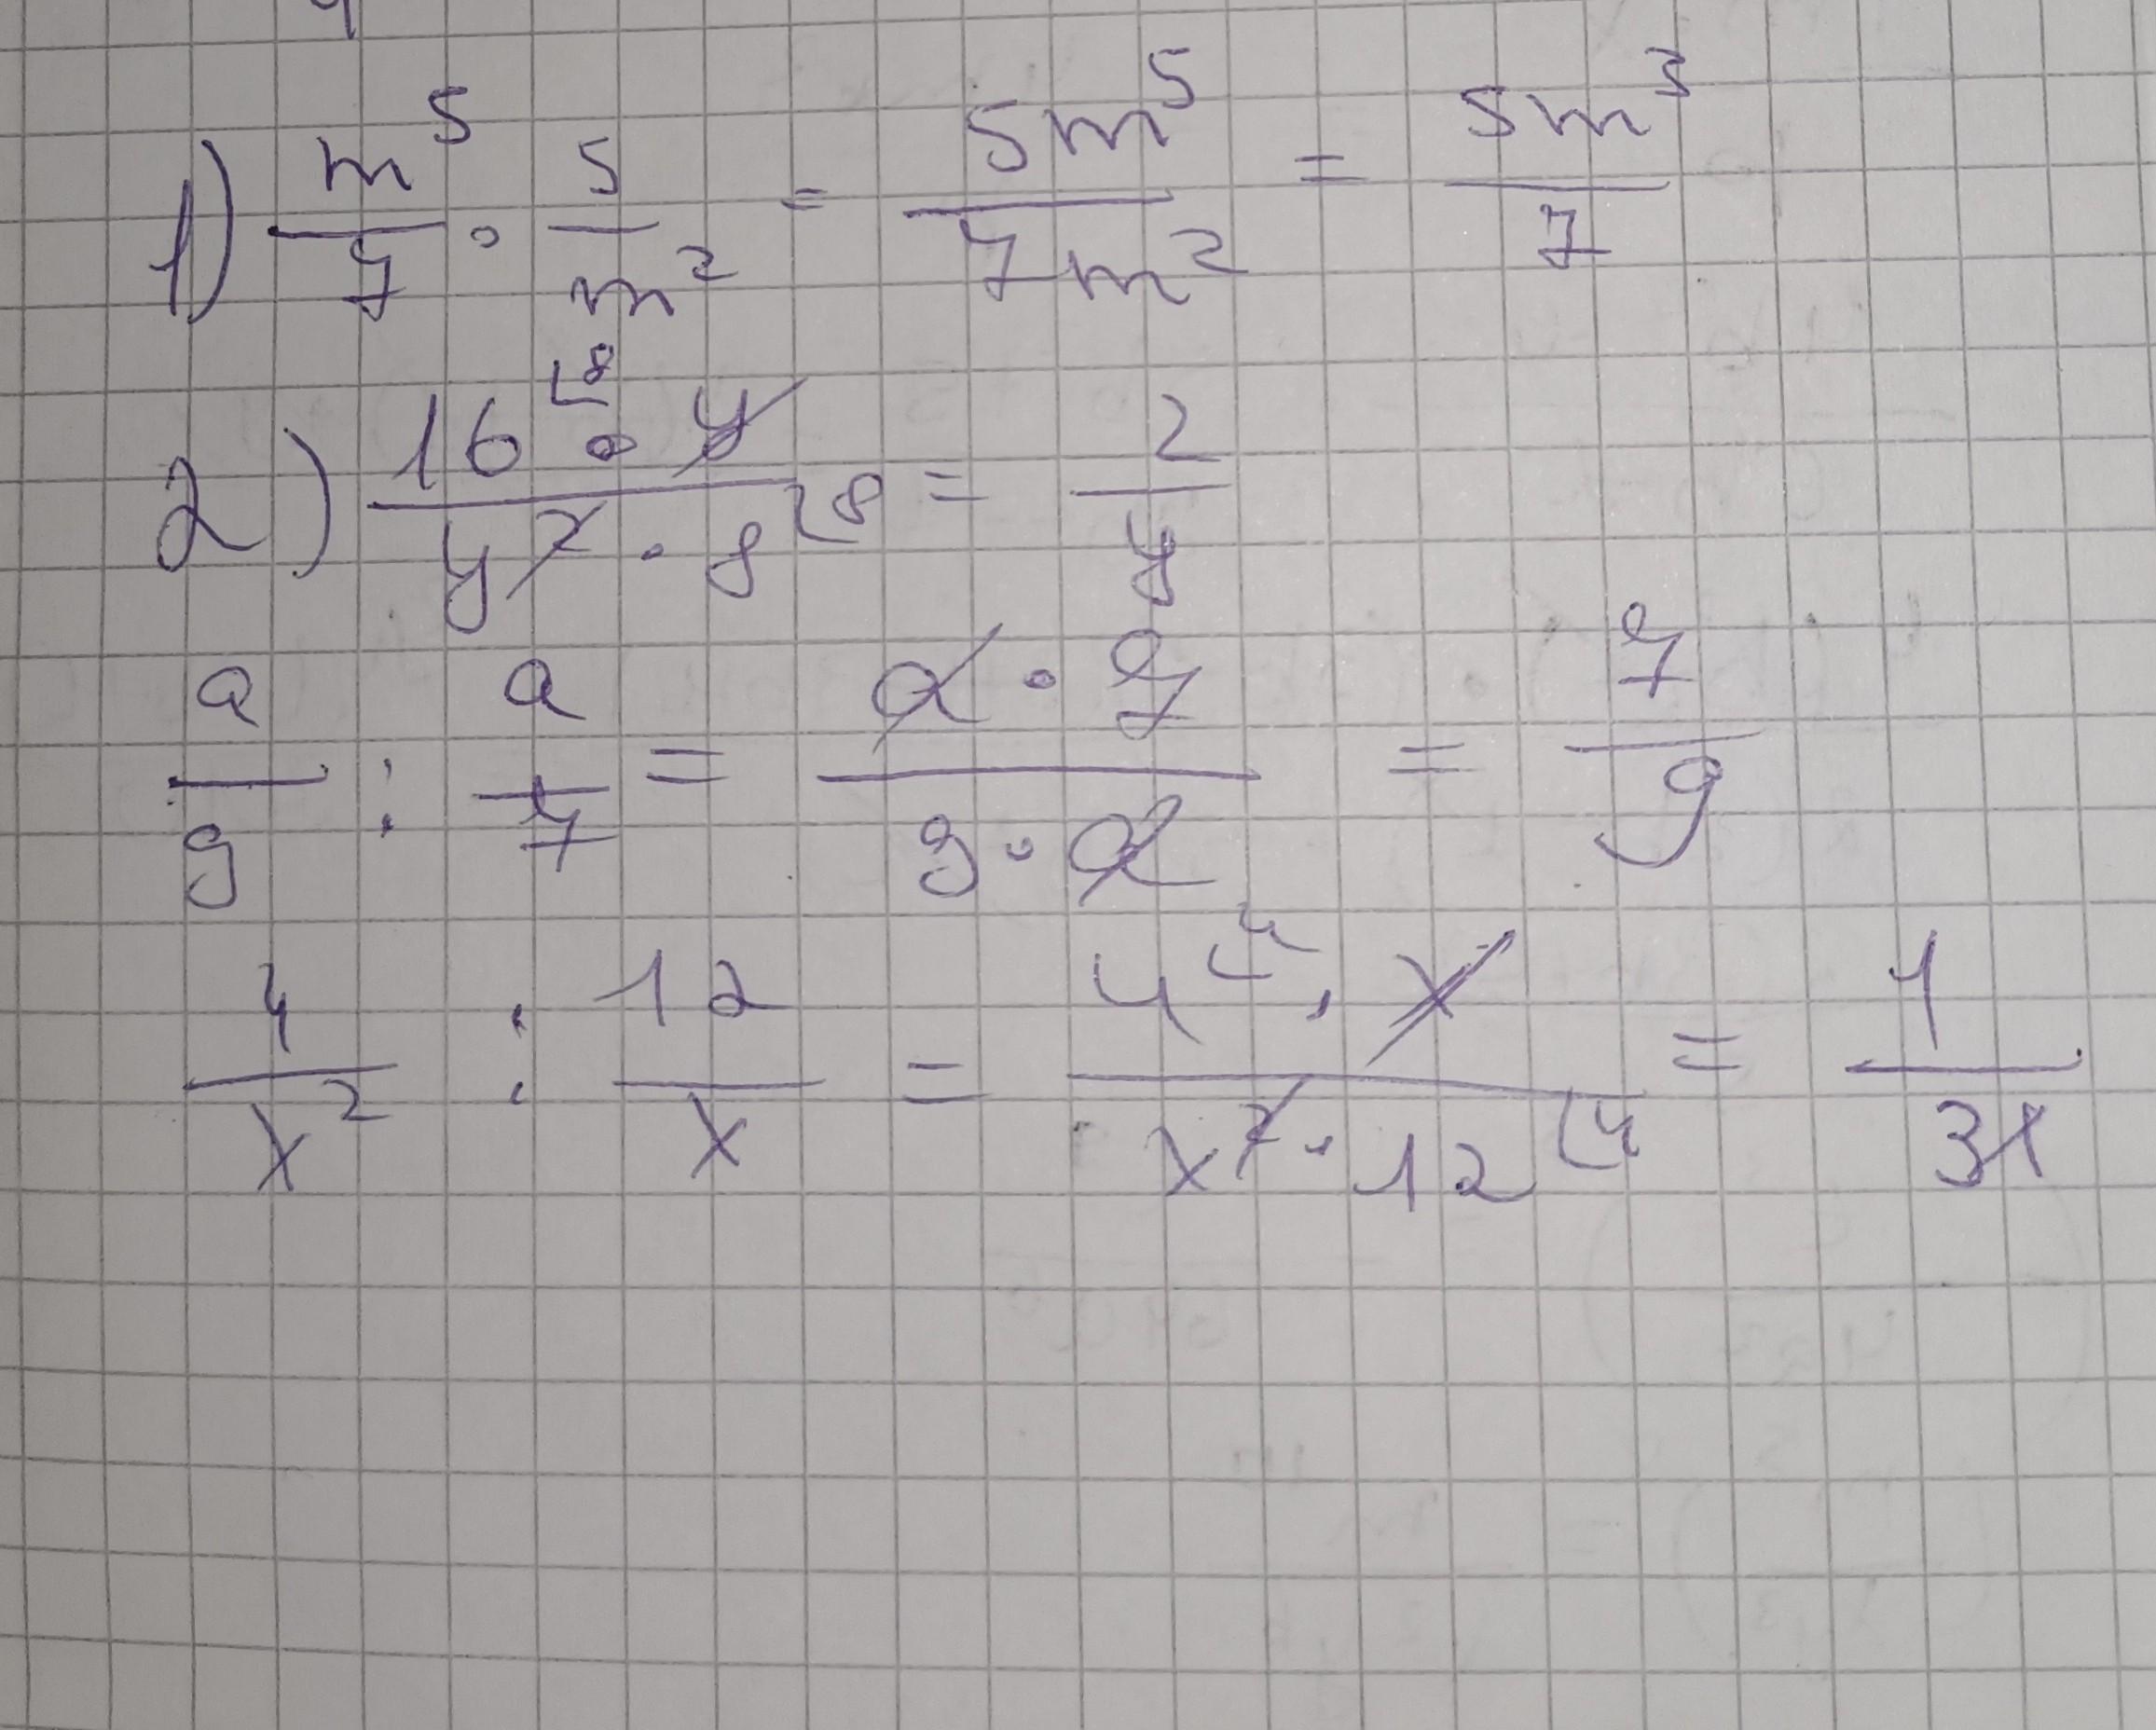 1) m^5/7 · 5/m^2 = 5m^5/7m^2 = 5m^3/7
2) 16⌊8 · y/y^2 · 8⌊8 = 2/y
a/9 : a/7 = a · 7/9 · a = 7/9
4/x^2 : 12/x = 4⌊4 · x/x^2 · 12⌊4 = 1/3x